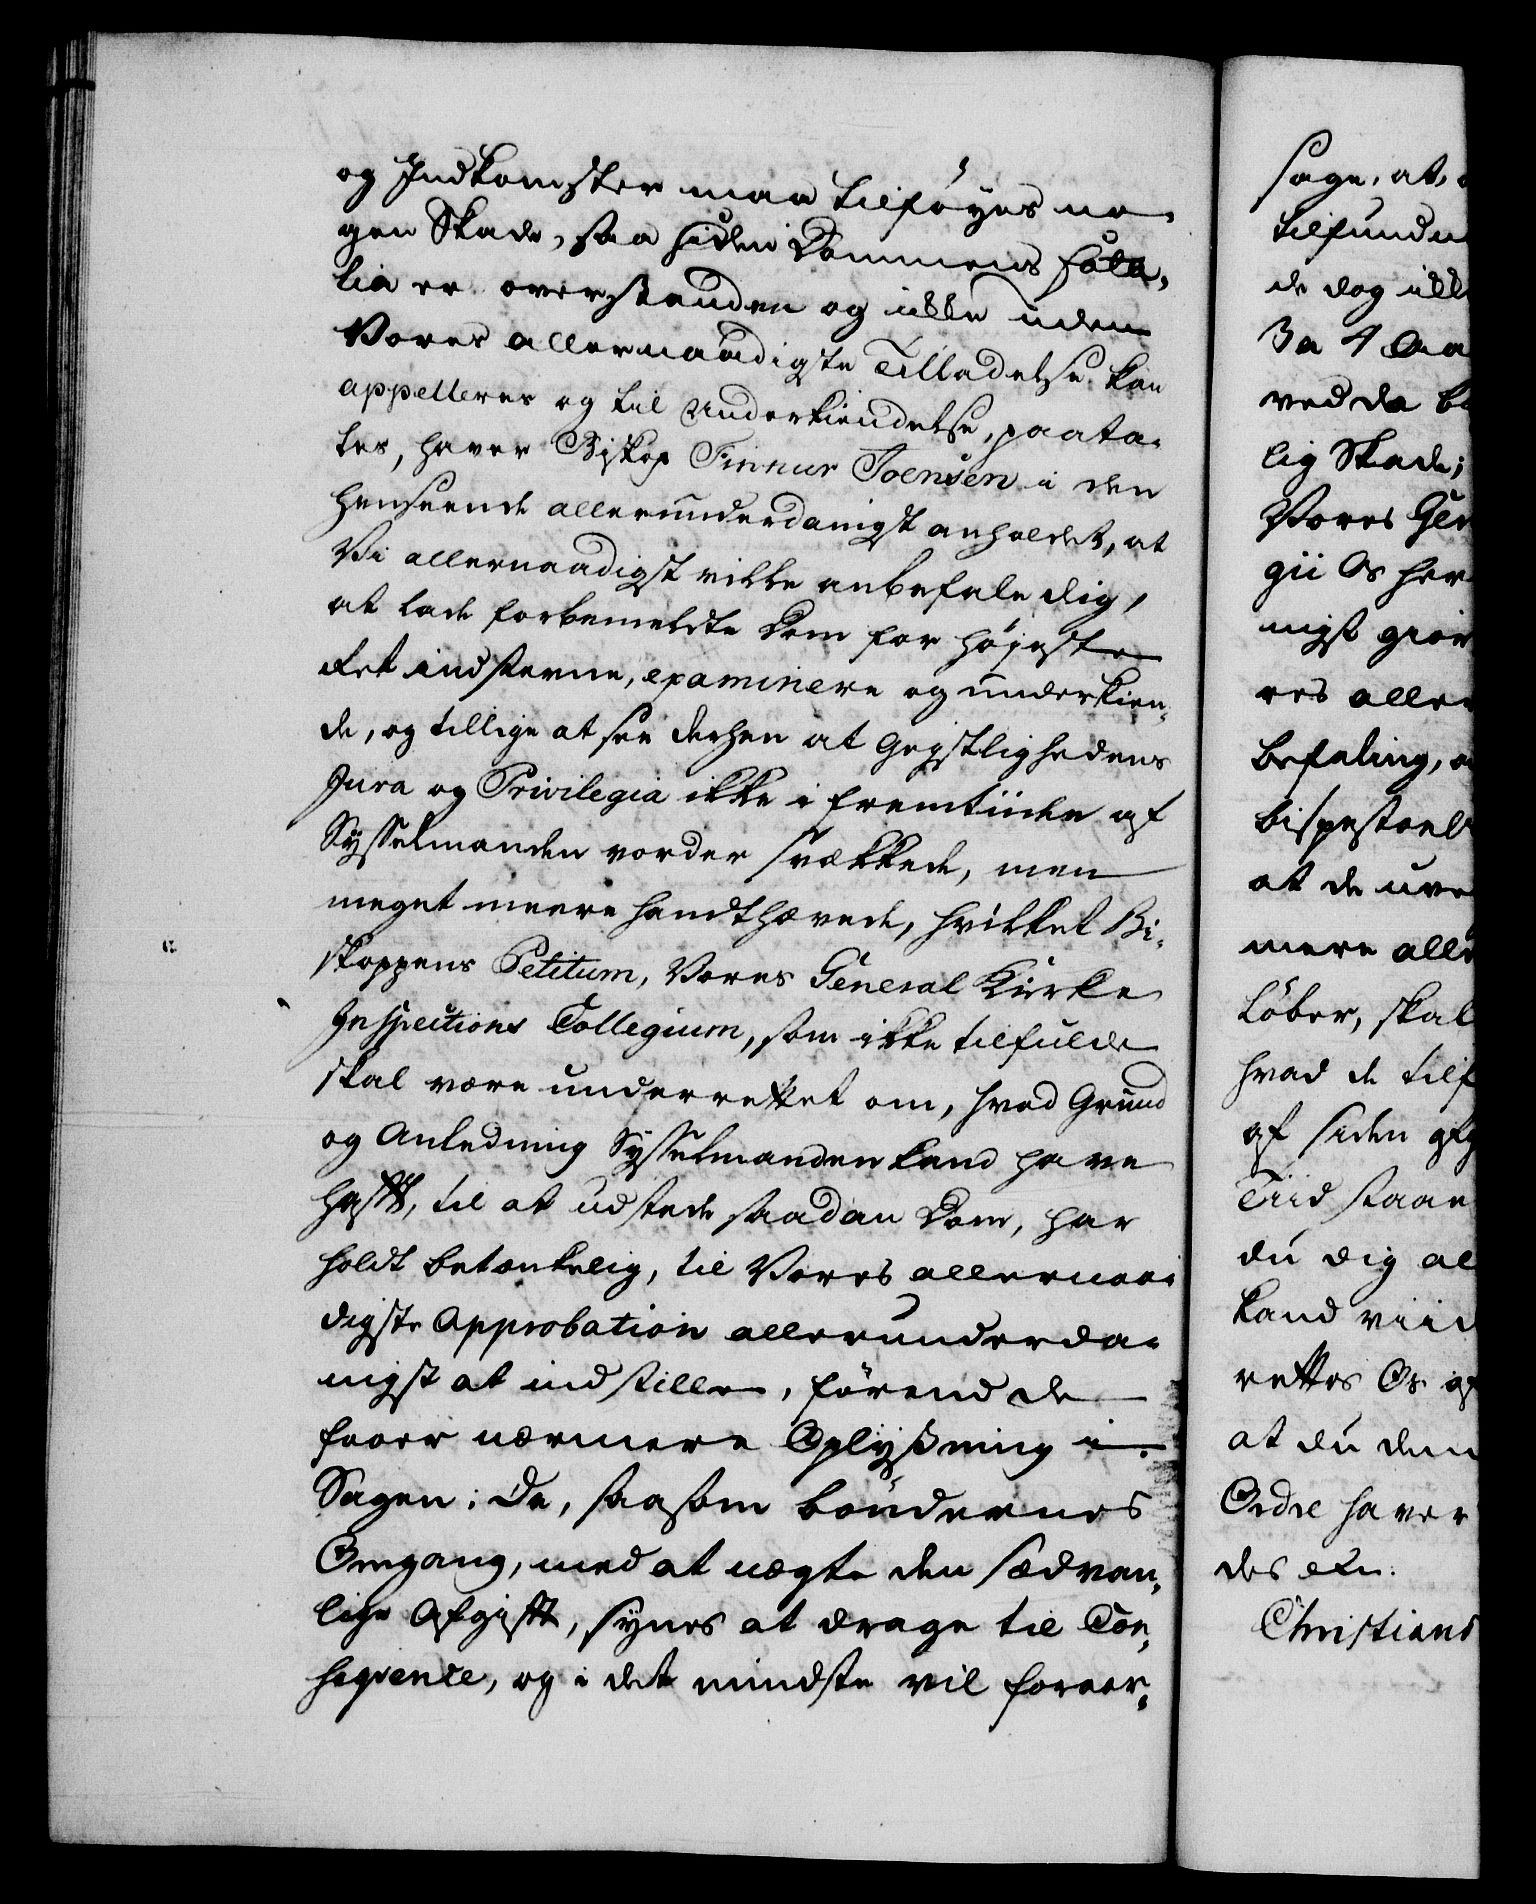 og Indkomster maa tilføyes no-
gen Skade, saa siden Dommens fata-
lia er overstanden og ikke uden
Vores allernaadigste Tilladelse kan
appelleres og til Underkiendelse, paata-
les, haver Biskop Finnur Joensen i den
henseende allerunderdanigst anholdet, at
Vi allernaadigst vilde anbefale dig,
at lade forbemeldte Dom for høyeste
Ret indstevne, examinere og underkien-
de, og tillige at see derhen at Geystlighedens
Jura og Privilegia ikke i fremtiiden af
Sysselmanden vorder svækkede, men
meget meere handthævede, hvilket Bi-
skoppens Petitum, Vores General Kirke
Inspections Collegium, som ikke tilfulde
skal være underrettet om, hvad Grund
og Anledning Sysselmanden kand have
hafft, til at udstede saadan Dom, har
holdt betænkelig, til Vores allernaa-
digste Approbation allerunderda-
nigst at indstille, førend de
faaer nærmere Oplysning i
Sagen; Da, saasom bøndernes
Omgang, med at nægte den sædvan-
lige Afgifft, synes at drage til Con-
seqvence, og i det mindste vil foraar-
sage, at
tilfunden
de dog ikke
3 a 4 Aa
ved da
lig Skade;
Vores Gen
gii Os her
nigst giør
res aller
befaling,
bispestoel
at de uve
mere alle
løber, skal
hvad de tilf
af siden
Tiid staae
du dig al
kand viid
rettes Os
at du den
Ordre haver
des etc.
Christians